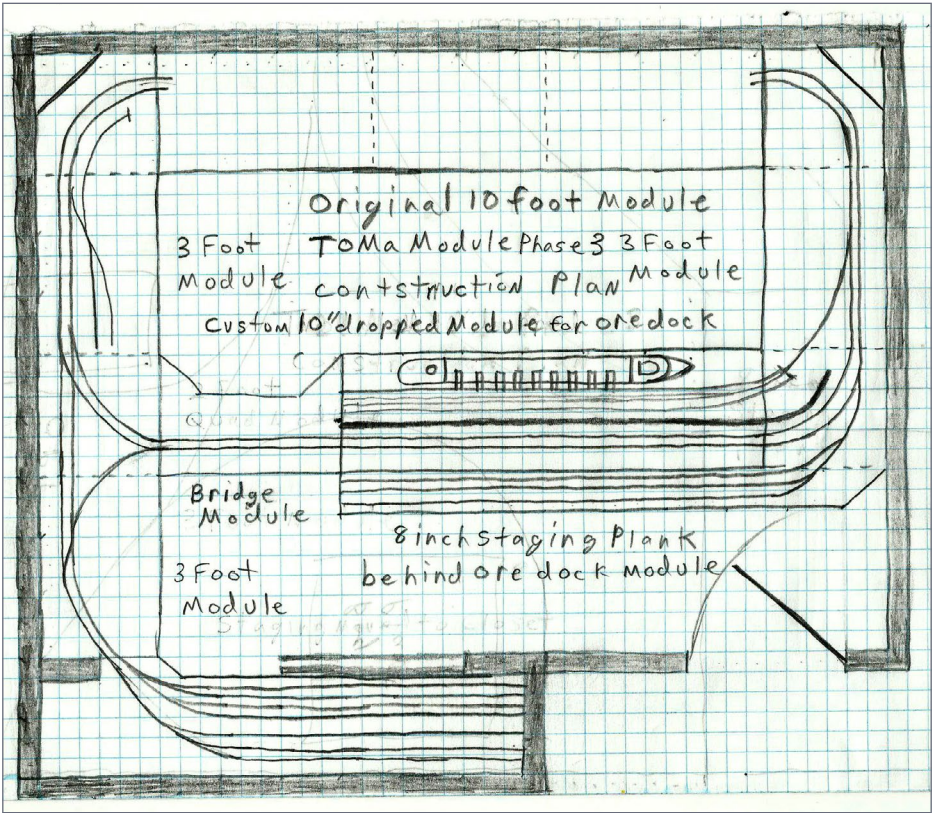 Original 10 foot Module
3 Foot
Module
TOMa Module Phase 3
3 Foot
Module
contstruction Plan
Custom 10" dropped Module for ore dock
Bridge
Module
8 inch Staging Plank
behind ore dock Module
3 Foot
Module